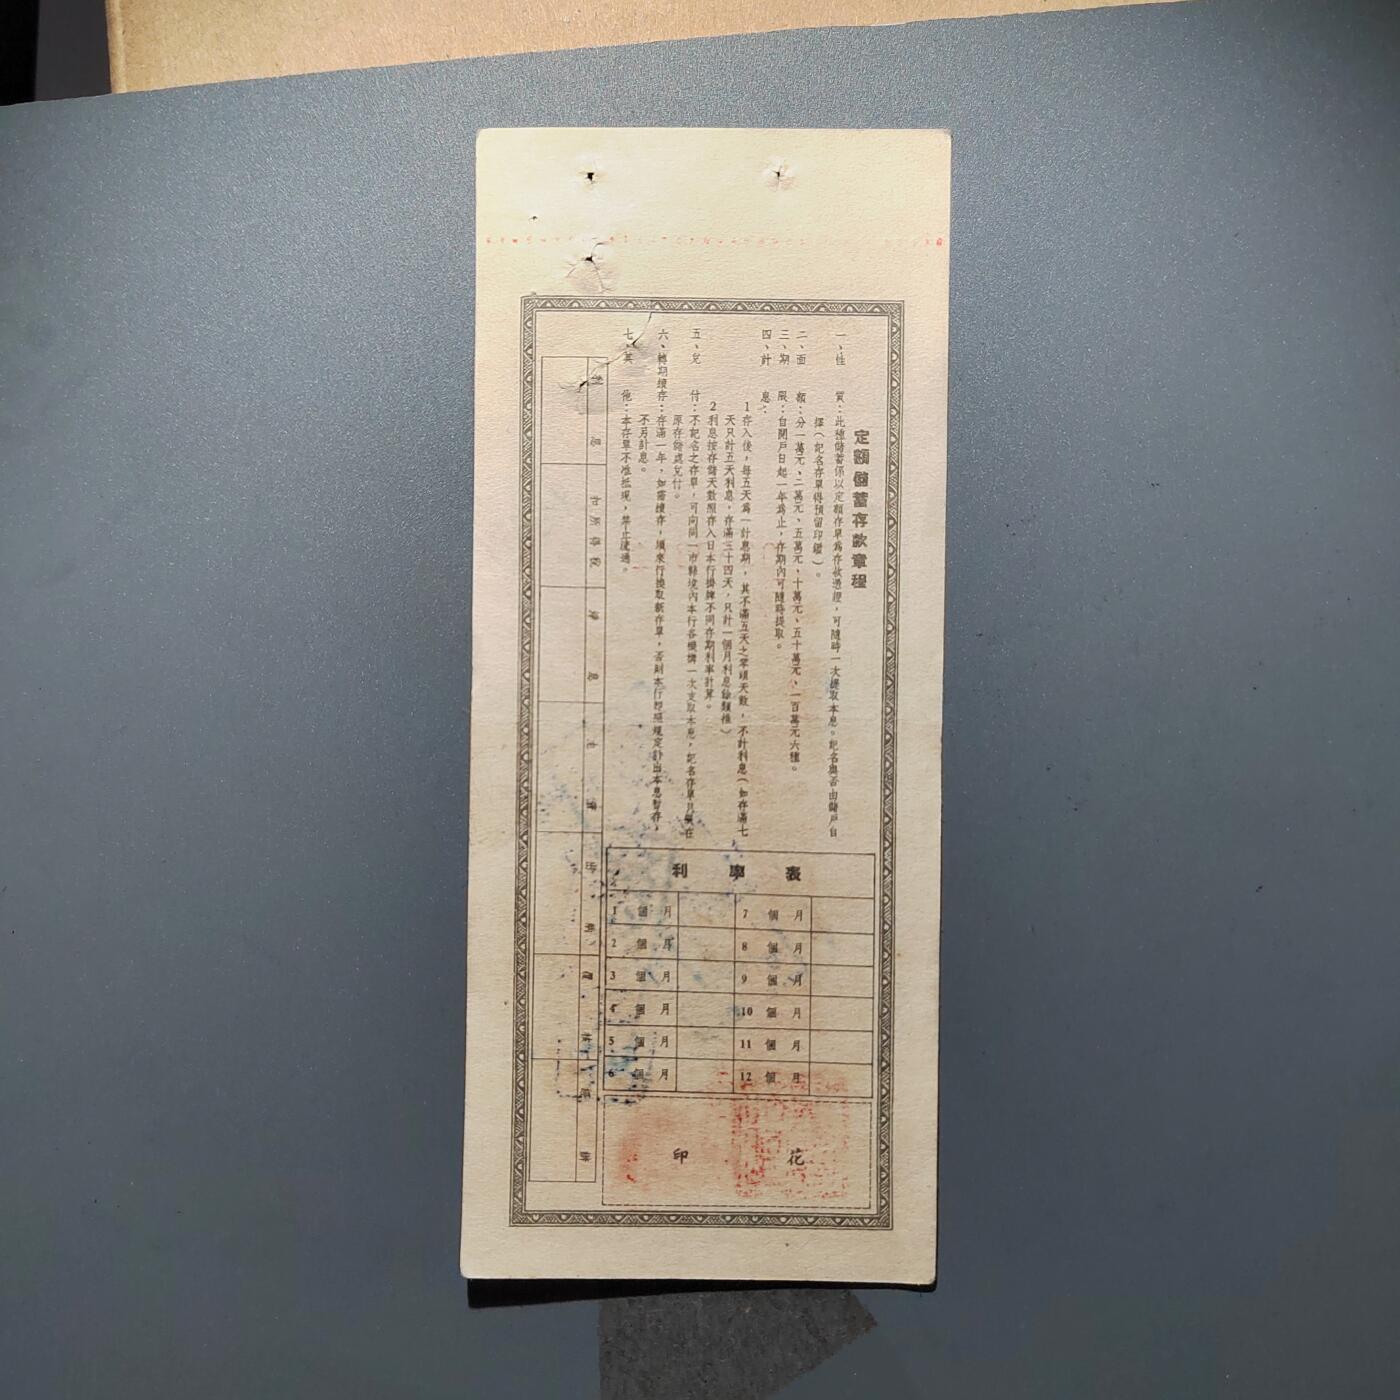 定額儲蓄存款章程
一、性　質：此種儲蓄係以定額存單為存款憑證，可隨時一次提取本息。記名與否由儲戶自
擇（記名存單得預留印鑑）。
二、面　額：分一萬元、二萬元、五萬元、十萬元、五十萬元、一百萬元六種。
三、期　限：自開戶日起一年為止，存期內可隨時提取。
四、計　息：
1存入後，每五天為一計息期，其不滿五天之零頭天數，不計利息（如存滿七
天只計五天利息，存滿三十四天，只計一個月利息餘類推）
2利息按存儲天數照存入日本行掛牌不同存期利率計算。
五、兌　付：不記名之存單，可向同一市縣境內本行各機構一次支取本息，記名存單只限在
原存儲處兌付。
六、轉期續存：存滿一年，如需續存，須來行換取新存單，否則本行即照規定計出本息暫存，
不另計息。
七、其　他：本存單不准抵現，禁止流通。
利息
扣所得稅
淨息
利率表
1個月
7個月
2個月
8個月
3個月
9個月
4個月
10個月
5個月
11個月
6個月
12個月
印花